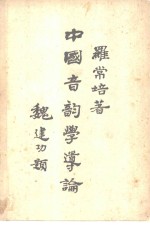 羅常培著
中國音韵學導論
魏建功題